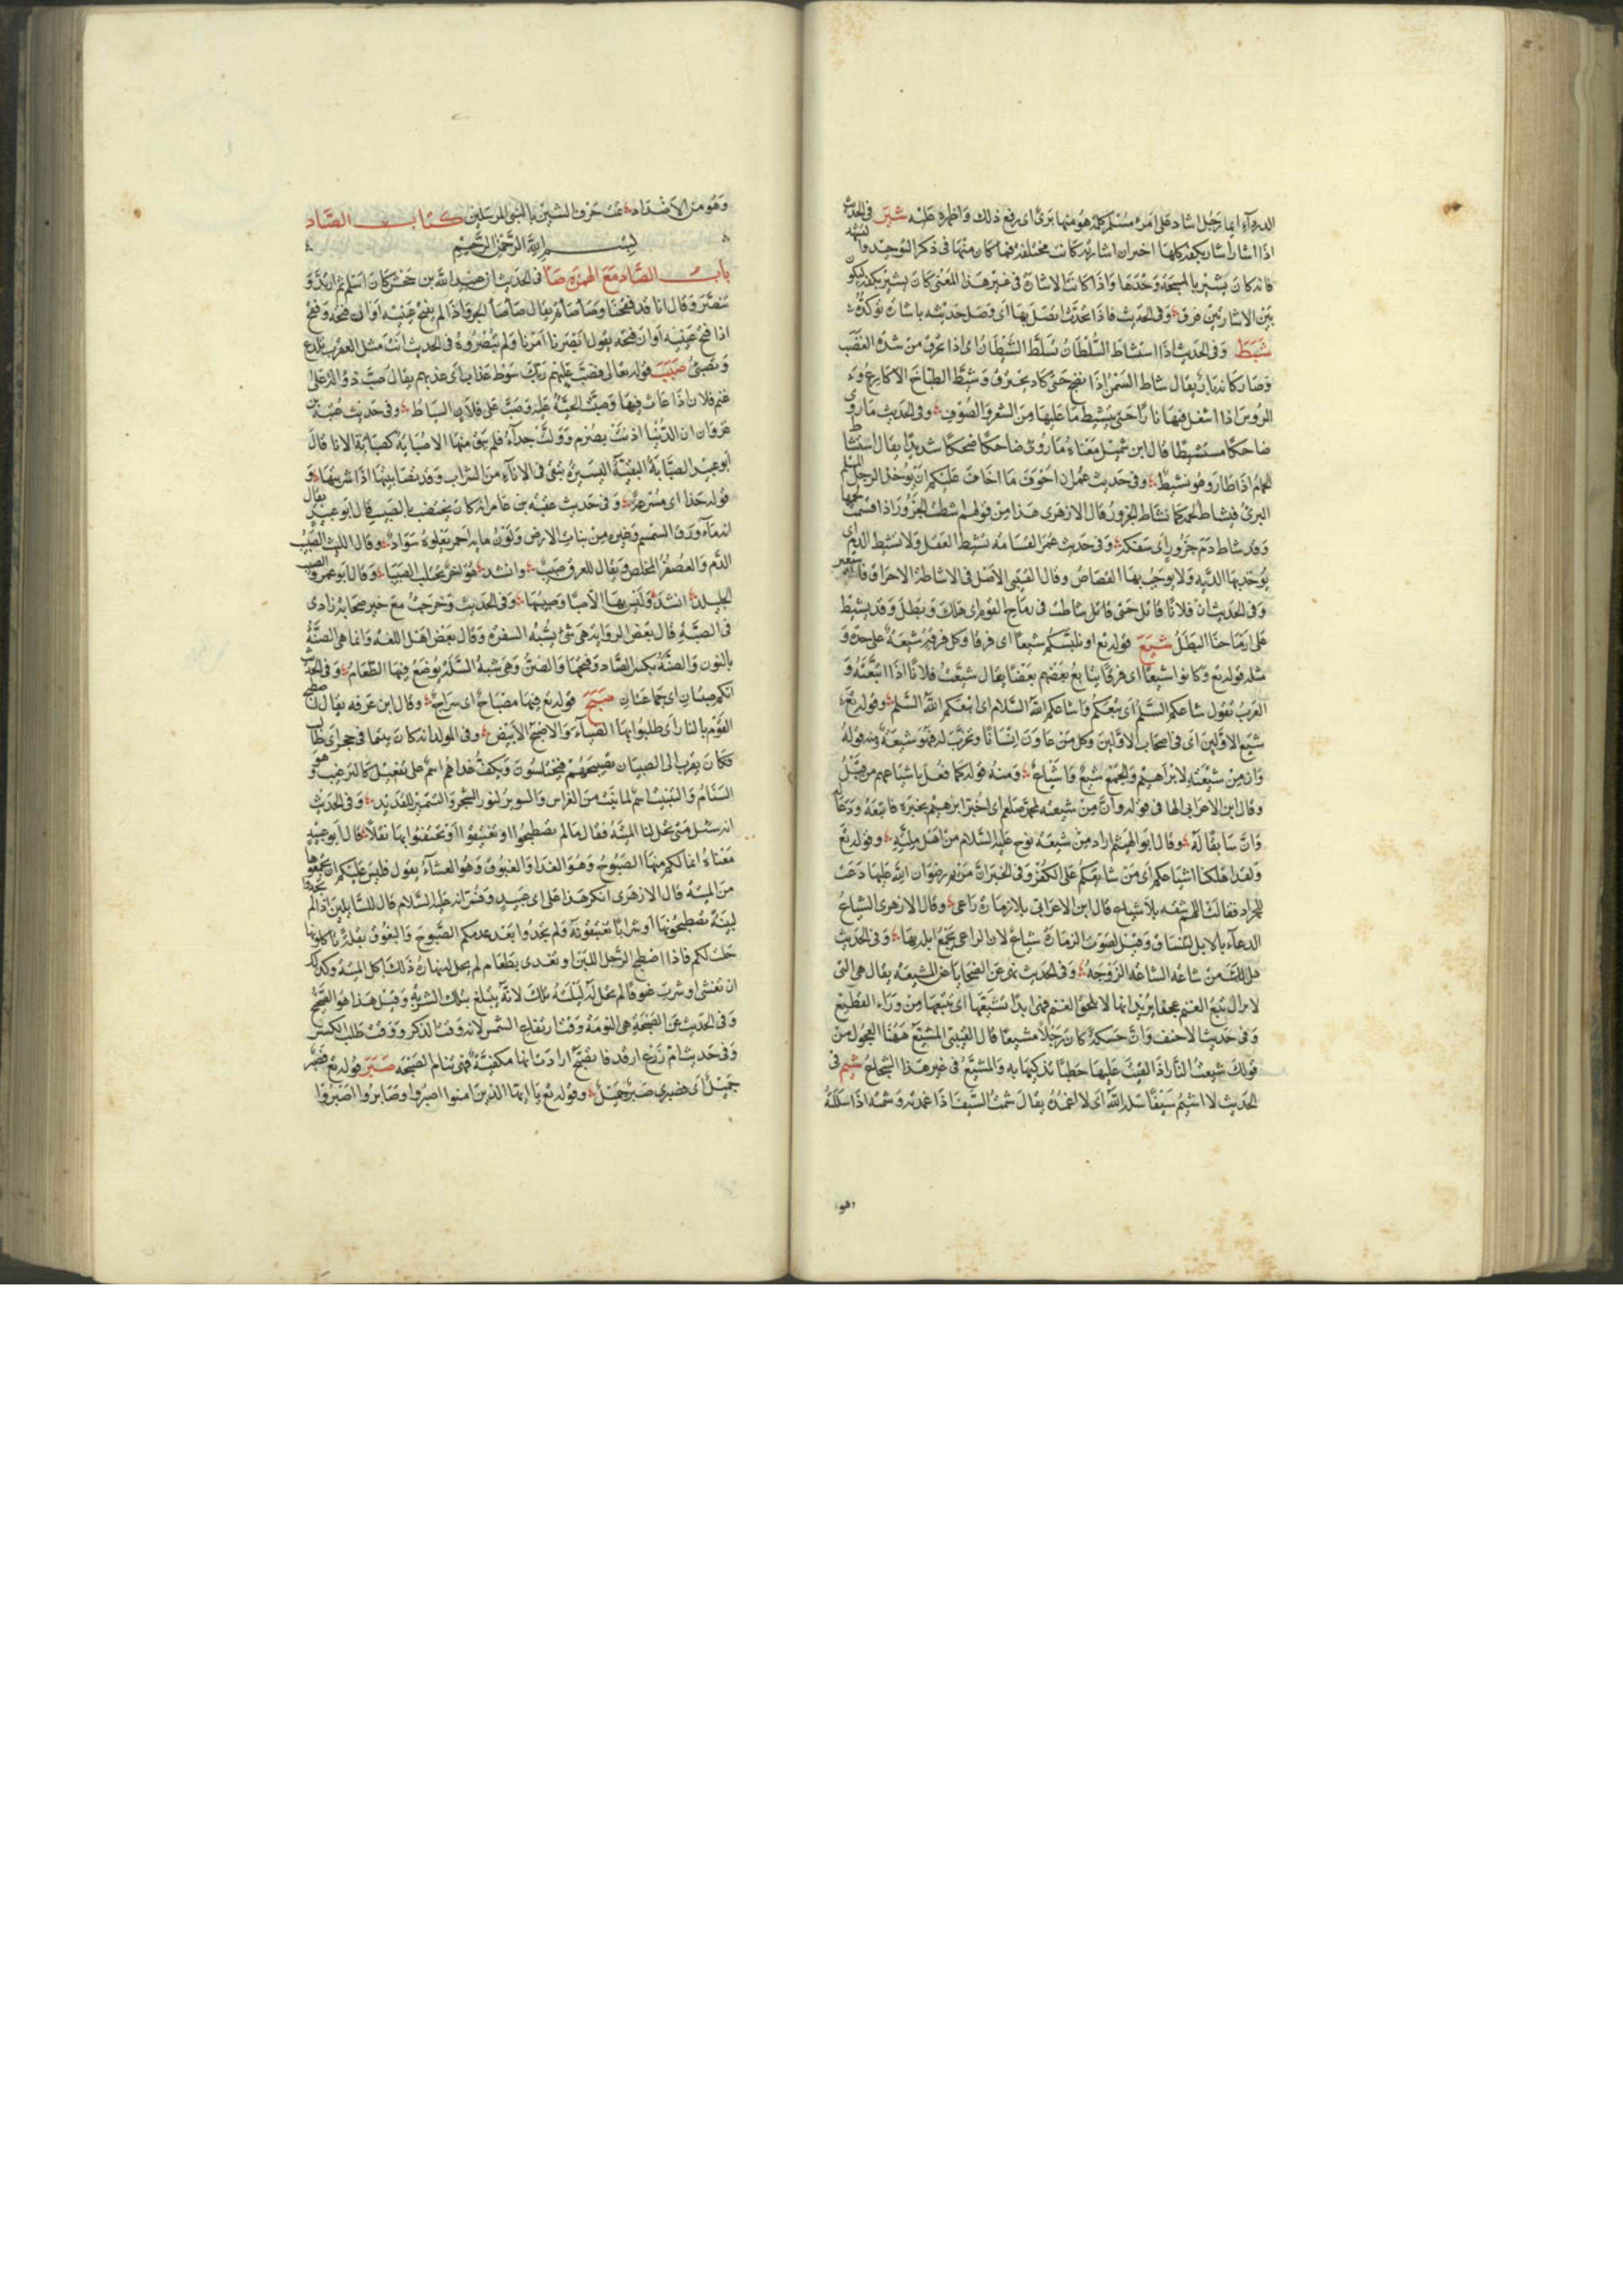 الدرداء ايما رجل اشاد على امرء مسلم كلمة هو منها برئ اى رفع ذلك واظهره عليه شير فى الحديث
اذا اشار اشار بكفه كلها اخبر ان اشارته كانت مختلفة فما كان منها فى ذكر التوحيد والتشهد
فانه كان يشير بالمسبحة وحدها واذا كانت الاشارة فى غير هذا المعنى كان يشير بكفه ليكون
بين الاشارتين فرق وفى الحديث فاذا تحدث اتصل بها اى وصل حديثه باشارة تؤكده
شيط وفى الحديث اذا استشاط السلطان تسلط الشيطان اى اذا تحرق من شدة الغضب
وصار كانه نار يقال شاط السمن اذا نضج حتى كاد يحترق وشيط الطباخ الاكارع و
الرؤس اذا اشعل فيها نارا حتى يتشيط ما عليها من الشعر والصوف وفى الحديث ما روى
ضاحكا مستشيطا قال ابن شميل معناه ضاحكا ضحكا شديدا يقال استشاط
الحمام اذا طار وهو نشيط وفى حديث عمر ان اخوف ما اخاف عليكم ان يؤخذ الرجل المسلم
البرئ فيشاط لحمه كما تشاط الجزور قال الازهرى هذا من قولهم شطت الجزور اذا قسمت لحمها
وقد شاط دم جزور اى سفكه وفى حديث عمر القسامة تشيط العقل ولا تشيط الدم اى
يؤخذ بها الدية ولا يوجب بها القصاص وقال القتيبى الاصل فى الاشاطة الاحراق
وفى الحديث ان فلانا قاتل حتى شاط فى رماح القوم اى هلك وبطل وقد يشيط
على ارماحنا البطل شيع قوله تع او يلبسكم شيعا اى فرقا وكل فرقة شيعة على حدة و
مثله قوله تع وكانوا شيعا اى فرقا يتابع بعضهم بعضا يقال شيعت فلانا اذا اتبعته و
العرب تقول شاعكم السلم اى تبعكم واشاعكم الله السلام اى اتبعكم الله السلم وقوله تع
شيع الاولين اى فى اصحاب الاولين وكل من عاون انسانا وتحزب له فهو شيعة ومنه قوله
وان من شيعته لابراهيم والجمع شيع واشياع ومنه قوله كما فعل باشياعهم من قبل
وقال ابن الاعرابى الها فى قوله وان من شيعته لمحمد صلعم اى اخبر ابرهيم بخبره فاتبعه ودعا له
وان سابقا له وقال ابو الهيثم اراد من شيعة نوح عليه السلام من اهل ملته وقوله تع
ولقد اهلكنا اشياعكم اى من شايعكم على الكفر وفى الخبر ان مريم رضوان الله عليها دعت
للجراد فقالت اللهم سقه بلا شياع قال ابن الاعرابى بلا زمارة راعى وقال الازهرى الشياع
الدعاء بالابل لتنساق وقيل لصوت الزمارة شياع لان الراعى يجمع ابله بها وفى الحديث
هل لك من شاعة الشاعة الزوجة وفى الحديث نهى عن الضحايا عن المشيعة يقال هى التى
لا تزال تتبع الغنم عجفا يريد انها لا تلحق الغنم فهى ابدا تشيعها اى تتبعها من وراء القطيع
وفى حديث الاحنف وان حسكة كان رجلا مشيعا قال القتيبى المشيع ههنا العجول من
قولك شيعت النار اذا القيت عليها حطبا تذكيها به والمشيع فى غير هذا الشجاع شيم فى
الحديث لا اشيم سيفا سله الله اى لا اغمده يقال شمت السيف اذا اغمدته وشمته اذا سللته
وهو
وهو من الاضداد تمت حرف الشين بالنبى والمرسلين كتاب الصاد
بسم الله الرحمن الرحيم
باب الصاد مع الهمزة صا فى الحديث ان عبيد الله بن جحش كان اسلم ثم ارتد و
تنصر وقال انا قد فقحنا وصأصأتم يقال صأصأ الجرو اذا لم يفتح عينيه اوان فتحه وفقح
اذا فتح عينيه اوان فتحه يقول ابصرنا امرنا ولم تبصروه فى الحديث انت مثل العقرب تلدغ
وتصئ صبب قوله تعالى فصب عليهم ربك سوط عذاب اى عذبهم يقال صب ذؤالة على
غنم فلان اذا عاث فيها وصبت الحية عليه وصب على فلان السياط وفى حديث عتبة بن
غزوان ان الدنيا اذنت بصرم وولت حذاء فلم يبق منها الا صبابة كصبابة الانا قال
ابو عبيد الصبابة البقية اليسيرة تبقى فى الاناء من الشراب وقد تصاببتها اذا شربتها و
قوله حذا اى مسرعة وفى حديث عقبة بن عامر انه كان يختضب بالصبيب قال ابو عبيد يقال
انه ماء ورق السمسم وغيره من نبات الارض ولون مائه احمر يعلوه سواد وقال الليث الصبيب
الدم والعصفر المخلص ويقال للعرق صبيب وانشد هواجر تحلب الصبيبا وقال ابو عمرو الصبيب
الجليد انشد وليس بها الا صبا وصبيبها وفى الحديث وخرجت مع خير صحابة زادى
فى الصبة قال بعض الرواة هى شئ يشبه السفرة وقال بعض اهل اللغة وانما هى الصنة
بالنون والصنة بكسر الصاد وفتحها والصن وهى شبه السلة يوضع فيها الطعام وفى الحديث
انكم صبتان اى جماعتان صبح قوله تع فيها مصباح اى سراج وقال ابن عرفه يقال اصطبح
القوم بالنار اى طلبوا بها الضياء والاصبح الابيض وفى المولد انه كان يتيما فى حجر ابى طالب
فكان يقرب الى الصبيان تصبيحهم فيختلسون ويكف غداهم اسم على تفعيل كالترغيب وهو
السنام والتنبيت اسم لما نبت من الغراس والتنوير لنور الشجر والتمتين للقديد وفى الحديث
انه سئل متى تحل لنا الميتة فقال ما لم تصطبحوا او تغتبقوا او تختفئوا بها بقلا قال ابو عبيد
معناه انما لكم منها الصبوح وهو الغدا والغبوق وهو العشاء يقول فليس عليكم ان تجمعوها
من الميتة قال الازهرى انكر هذا على ابى عبيد وفسر انه عليه السلام قال للسائلين اذا لم تجدوا
لبينة تصطبحونها او شرابا تغتبقونه ولم تجدوا بعد عدمكم الصبوح والغبوق بقلة تاكلونها
حلت لكم فاذا اصطبح الرجل اللبن او تغدى بطعام لم يحل له نهاره ذلك اكل الميتة وكذلك
ان تعشى او شرب غبوقا لم يحل له ليلته تلك لانه يتبلغ بتلك الشربة وقيل هذا هو الصحيح
وفى الحديث عن الصبحة هى النومة وقت ارتفاع الشمس لانه وقت الذكر ووقت طلب الكسب
وفى حديث ام زرع ارقد فاتصبح ارادت انها مكفية فهى تنام الصبحة صبر قوله تع فصبر
جميل اى صبرى صبر جميل وقوله تع يا ايها الذين امنوا اصبروا وصابروا اصبروا